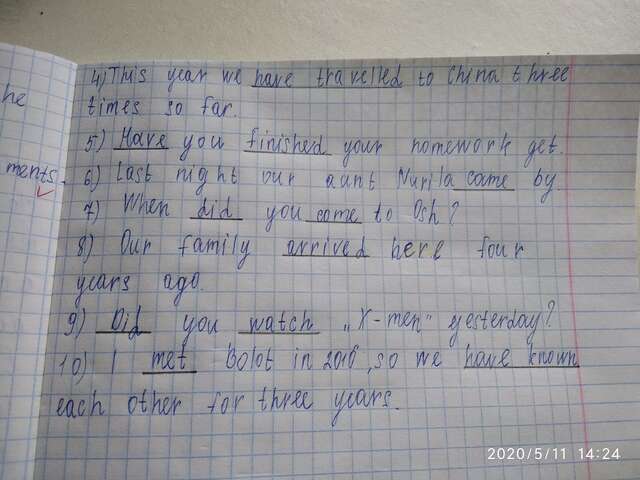 he
ments.
4) This year we have travelled to China three
times so far.
5) Have you finished your homework get.
6) Last night our aunt Nurila came by.
7) When did you come to Osh?
8) Our family arrived here four
years ago.
9) Did you watch „X-men" yesterday?
10) I met Bolot in 2016, so we have known
each other for three years.
2020/5/11 14:24